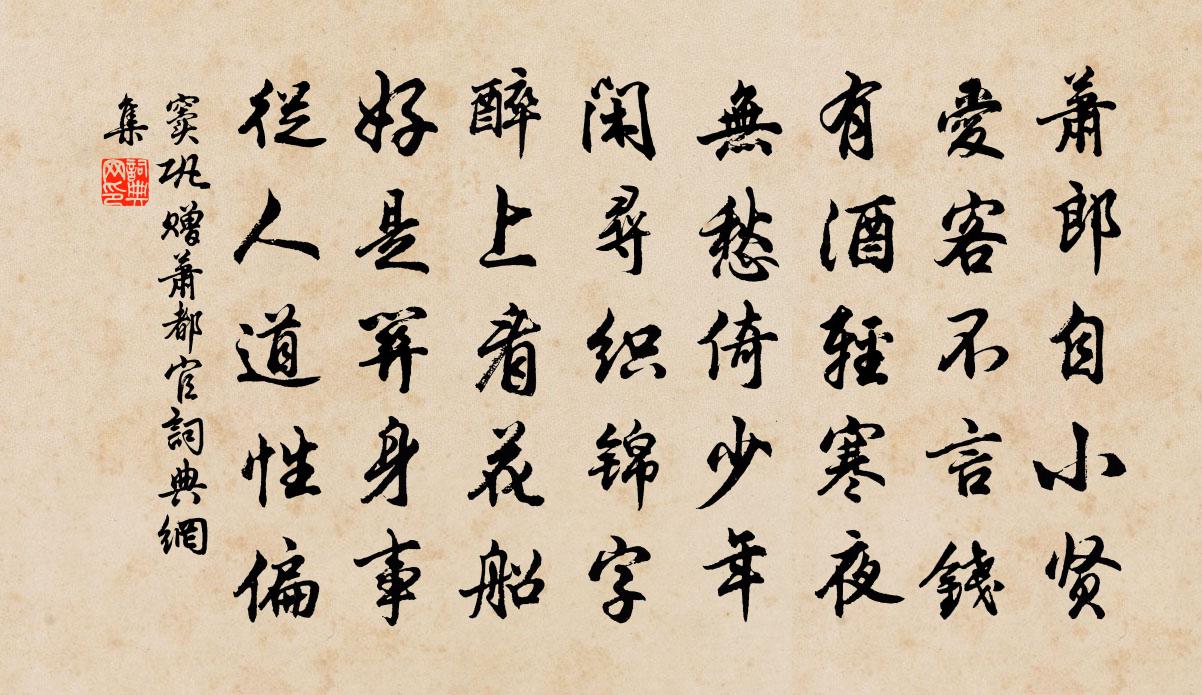 蕭郎自小贤
愛客不言錢
有酒輕寒夜
無愁倚少年
閑尋織錦字
醉上看花船
好是算身事
從人道性偏
竇巩贈蕭都官詞典網
集
詞典網印